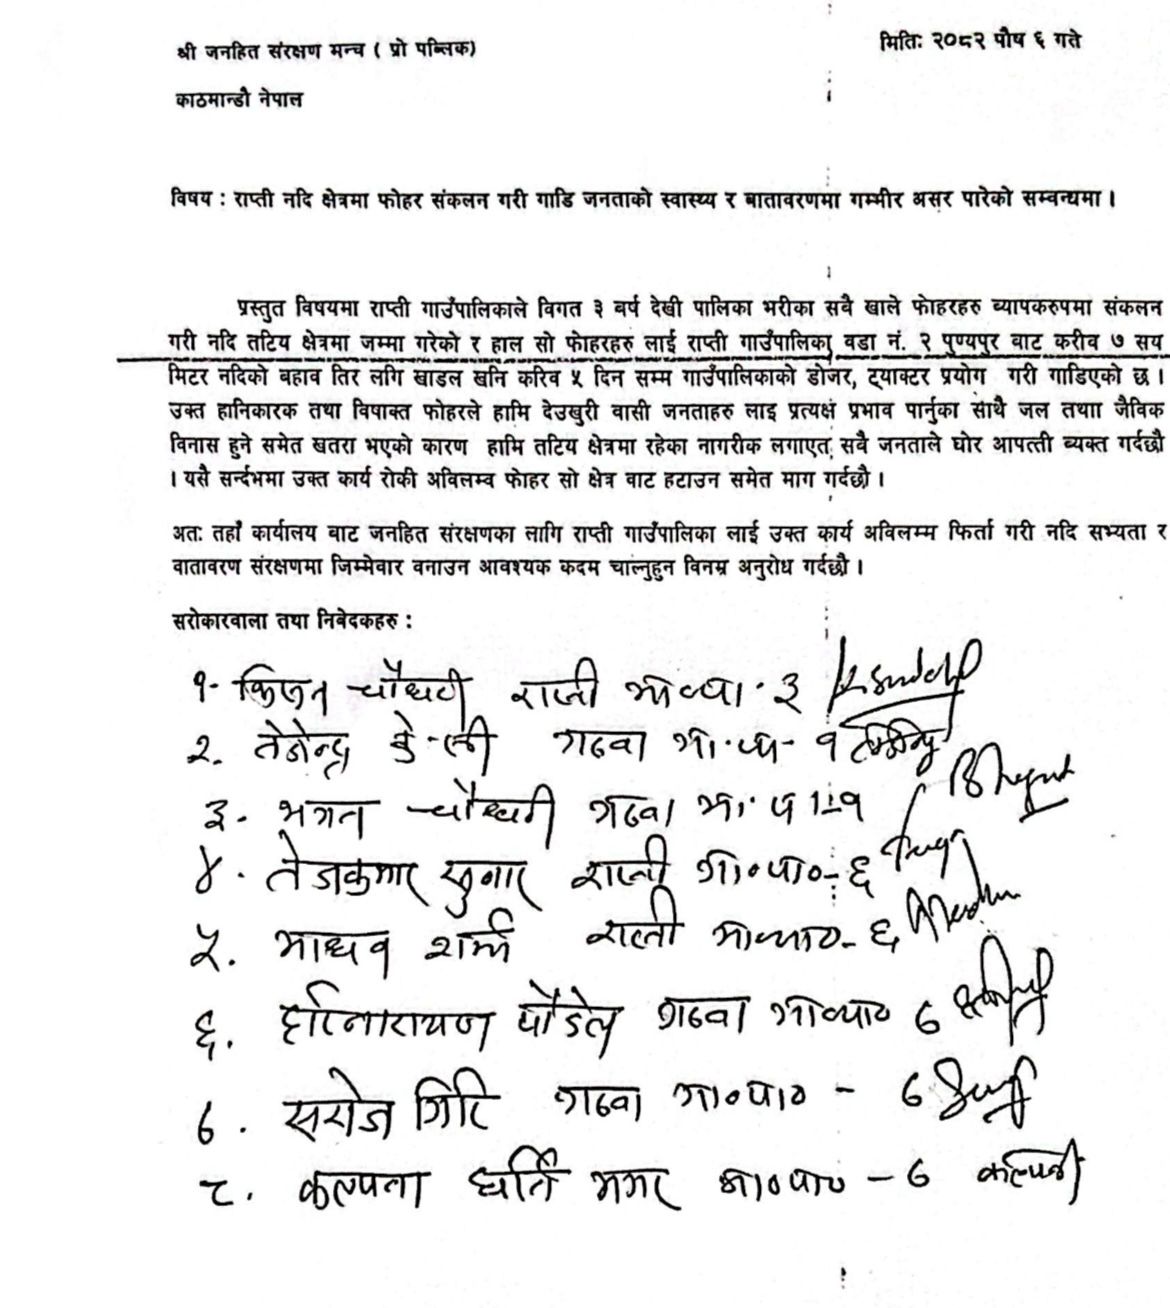 श्री जनहित संरक्षण मन्च ( प्रो पब्लिक)
मितिः २०८२ पौष ६ गते
काठमान्डौ नेपाल
विषय : राप्ती नदि क्षेत्रमा फोहर संकलन गरी गाडि जनताको स्वास्थ्य र बातावरणमा गम्मीर असर पारेको सम्वन्धमा ।
प्रस्तुत विषयमा राप्ती गाउँपालिकाले विगत ३ बर्ष देखी पालिका भरीका सबै खाले फोहरहरु ब्यापकरुपमा संकलन
गरी नदि तटिय क्षेत्रमा जम्मा गरेको र हाल सो फोहरहरु लाई राप्ती गाउँपालिका वडा नं. २ पुण्यपुर बाट करीव ७ सय
मिटर नदिको बहाव तिर लगि खाडल खनि करिव ५ दिन सम्म गाउँपालिकाको डोजर, ट्याक्टर प्रयोग गरी गाडिएको छ ।
उक्त हानिकारक तथा विषाक्त फोहरले हामि देउखुरी वासी जनताहरु लाइ प्रत्यक्ष प्रभाव पार्नुका साथै जल तथाा जैविक
विनास हुने समेत खतरा भएको कारण हामि तटिय क्षेत्रमा रहेका नागरीक लगाएत सबै जनताले घोर आपत्ती ब्यक्त गर्दछौ
। यसै सर्न्दभमा उक्त कार्य रोकी अविलम्व फोहर सो क्षेत्र वाट हटाउन समेत माग गर्दछौ ।
अतः तहाँ कार्यालय बाट जनहित संरक्षणका लागि राप्ती गाउँपालिका लाई उक्त कार्य अविलम्म फिर्ता गरी नदि सभ्यता र
वातावरण संरक्षणमा जिम्मेवार वनाउन आवश्यक कदम चाल्नुहुन विनम्र अनुरोध गर्दछौ ।
सरोकारवाला तथा निबेदकहरु :
१- चौधरी राप्ती गा.पा. ३
२. गढवा गा.पा- १
३- भगत चौधरी गढवा गा. पा १
४. तेजकुमार सुनार राप्ती गा०पा०- ६
५. माधव शर्मा राप्ती गा०पा०- ६
६. हरिनारायण पौडेल गढवा गा०पा० ७
७. सरोज गिरि गढवा गा०पा० - ७
८. कल्पना घर्ति मगर गा०पा० - ७ कल्पना